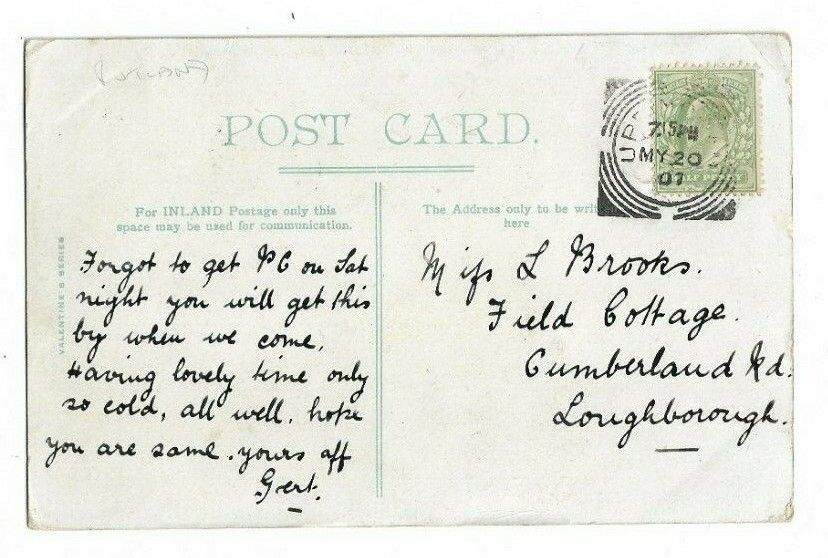 POST CARD.
For INLAND Postage only this
space may be used for communication.
The Address only to be
here
VALENTINE'S SERIES
7.15PM
MY 20
07
HALF PENNY
Forgot to get PC on Sat
night you will get this
by when we come,
Having lovely time only
so cold, all well. hope
you are same. yours aff
Gert.
Miss L Brooks.
Field Cottage.
Cumberland Rd.
Loughborough.